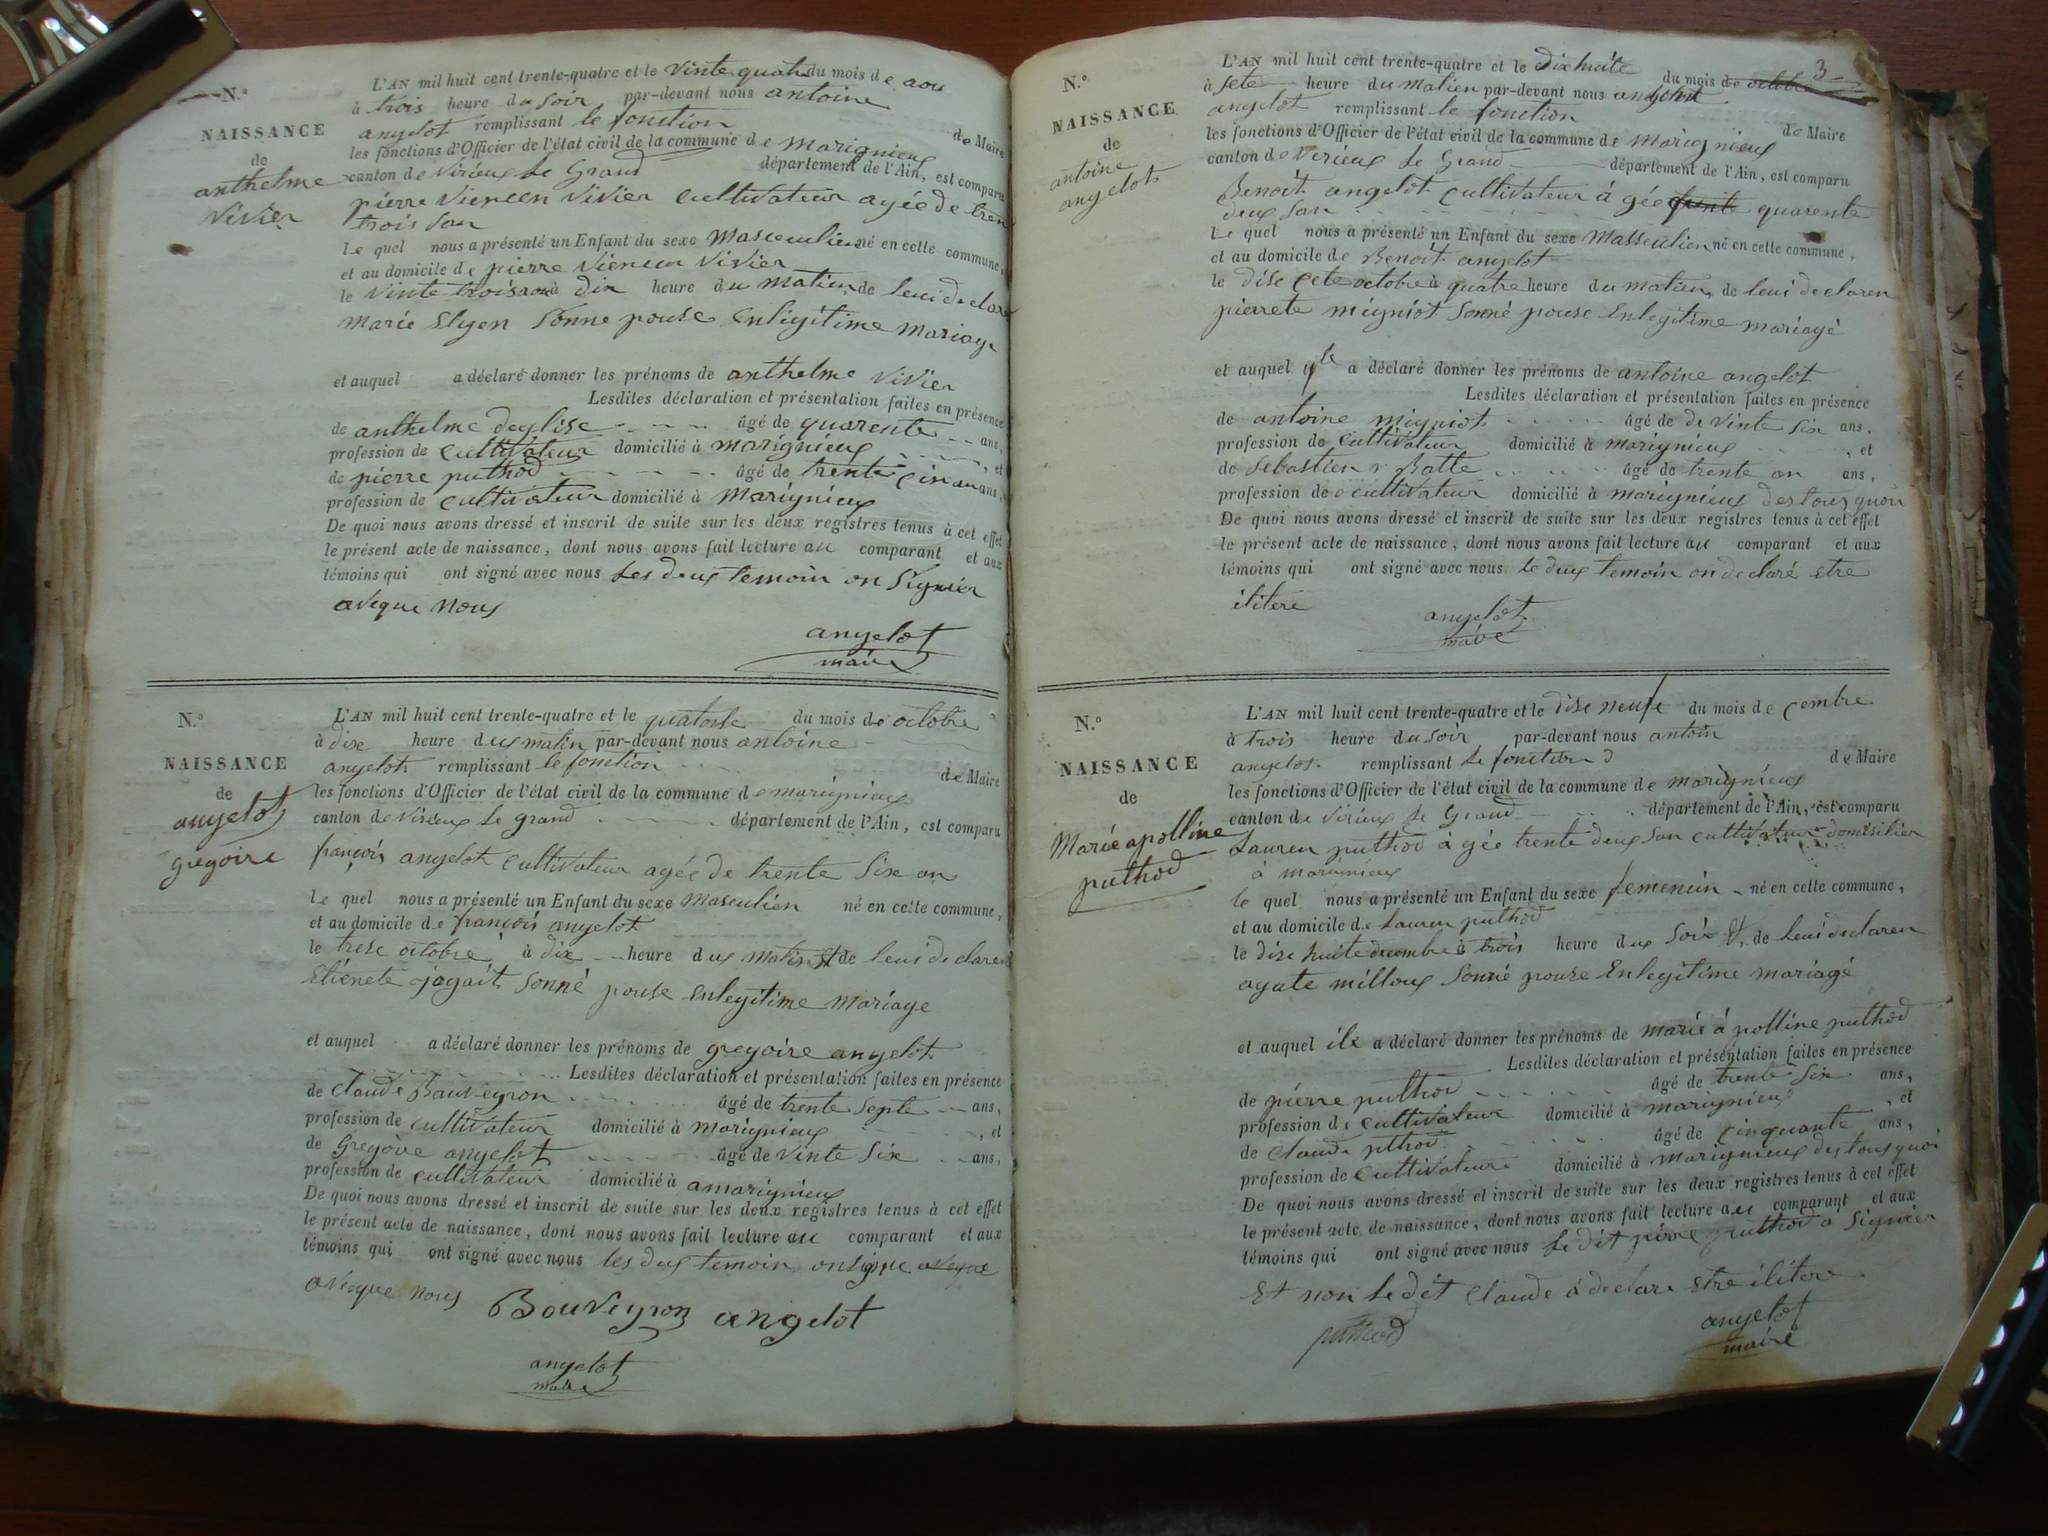 N.°
NAISSANCE
de
anthelme
vivier
L'AN mil huit cent trente-quatre et le vinte quatre du mois de aou
à trois heure du soir par-devant nous antoine
angelot remplissant le fonction de Maire
les fonctions d'Officier de l'état civil de la commune de marignieux
canton de virieux le Grand département de l'Ain, est comparu
pierre vieneen vivier cultivateur agée de tren
trois san
Le quel nous a présenté un Enfant du sexe masculien né en cette commune,
et au domicile de pierre vieneen vivier
le vinte trois aou à dix heure du matien, de leui declare
marie Elyen sonne pouse enlegitime mariage
et auquel a déclaré donner les prénoms de anthelme vivier
Lesdites déclaration et présentation faites en présence
de anthelme deglise âgé de quarente ans,
profession de cultivateur domicilié à marignieux, et
de pierre puthod âgé de trente cin an ans,
profession de cultivateur domicilié à marignieux
De quoi nous avons dressé et inscrit de suite sur les deux registres tenus à cet effet
le présent acte de naissance, dont nous avons fait lecture au comparant et aux
témoins qui ont signé avec nous les deux temoin on signier
aveque nous
angelot
maire
N.°
NAISSANCE
de
angelot
gregoire
L'AN mil huit cent trente-quatre et le quatorse du mois de octobre
à dixe heure du matin par-devant nous antoine
angelot remplissant le fonction de Maire
les fonctions d'Officier de l'état civil de la commune de marignieux
canton de virieux le grand département de l'Ain, est comparu
françois angelot cultivateur agée de trente six an
Le quel nous a présenté un Enfant du sexe masculien né en cette commune,
et au domicile de françois angelot
le trese octobre à dix heure du matin de leui declaren
Etienete jogait sonné pouse enlegitime mariage
et auquel a déclaré donner les prénoms de gregoire angelot
Lesdites déclaration et présentation faites en présence
de claude Bauveyron âgé de trente septe ans,
profession de cultivateur domicilié à marignieux, et
de Gregoire angelot âgé de vinte six ans,
profession de cultivateur domicilié à amarignieux
De quoi nous avons dressé et inscrit de suite sur les deux registres tenus à cet effet
le présent acte de naissance, dont nous avons fait lecture au comparant et aux
témoins qui ont signé avec nous les deux temoin on signe aveque
aveque nous Bouveyron angelot
angelot
maire
3
N.°
NAISSANCE
de
antoine
angelot
L'AN mil huit cent trente-quatre et le dix huite du mois de octobre
à sete heure du matien par-devant nous antoine
angelot remplissant le fonction de Maire
les fonctions d'Officier de l'état civil de la commune de marignieux
canton de virieux le Grand département de l'Ain, est comparu
Benoit angelot cultivateur à gée trente quarente
deux san
Le quel nous a présenté un Enfant du sexe masseulien né en cette commune,
et au domicile de Benoit angelot
le dise cete octobre à quatre heure du matien, de leui declaren
pierrete migniot sonné pouse enlegitime mariagé
et auquel yle a déclaré donner les prénoms de antoine angelot
Lesdites déclaration et présentation faites en présence
de antoine migniot âgé de de vinte six ans,
profession de cultivateur domicilié à marignieux, et
de sebastien Batte âgé de trente an ans,
profession de cultivateur domicilié à marignieux des tous quoi
De quoi nous avons dressé et inscrit de suite sur les deux registres tenus à cet effet
le présent acte de naissance, dont nous avons fait lecture au comparant et aux
témoins qui ont signé avec nous le deux temoin on declaré etre
ilitere
angelot
maire
N.°
NAISSANCE
de
Marie apolline
puthod
L'AN mil huit cent trente-quatre et le dise neufe du mois de cembre
à trois heure du soir par-devant nous antoin
angelot remplissant le fonction de Maire
les fonctions d'Officier de l'état civil de la commune de marignieux
canton de virieux le Grand département de l'Ain, est comparu
Lauren puthod à gée trente deux san cultivateur domisilier
à marignieux
le quel nous a présenté un Enfant du sexe femenein né en cette commune,
et au domicile de Lauren puthod
le dise huite decembre à trois heure du soir de leui declaren
agate milloux sonné pouse enlegitime mariagé
et auquel ile a déclaré donner les prénoms de marie à polline puthod
Lesdites déclaration et présentation faites en présence
de pierre puthod âgé de trente six ans,
profession de cultivateur domicilié à marignieux, et
de Claude pthod âgé de cinquante ans,
profession de cultivateur domicilié à marignieux des tous quoi
De quoi nous avons dressé et inscrit de suite sur les deux registres tenus à cet effet
le présent acte de naissance, dont nous avons fait lecture au comparant et aux
témoins qui ont signé avec nous le dit pierre puthod a signier
Et non le dét claude à declare etre ilitere
puthod angelot
maire